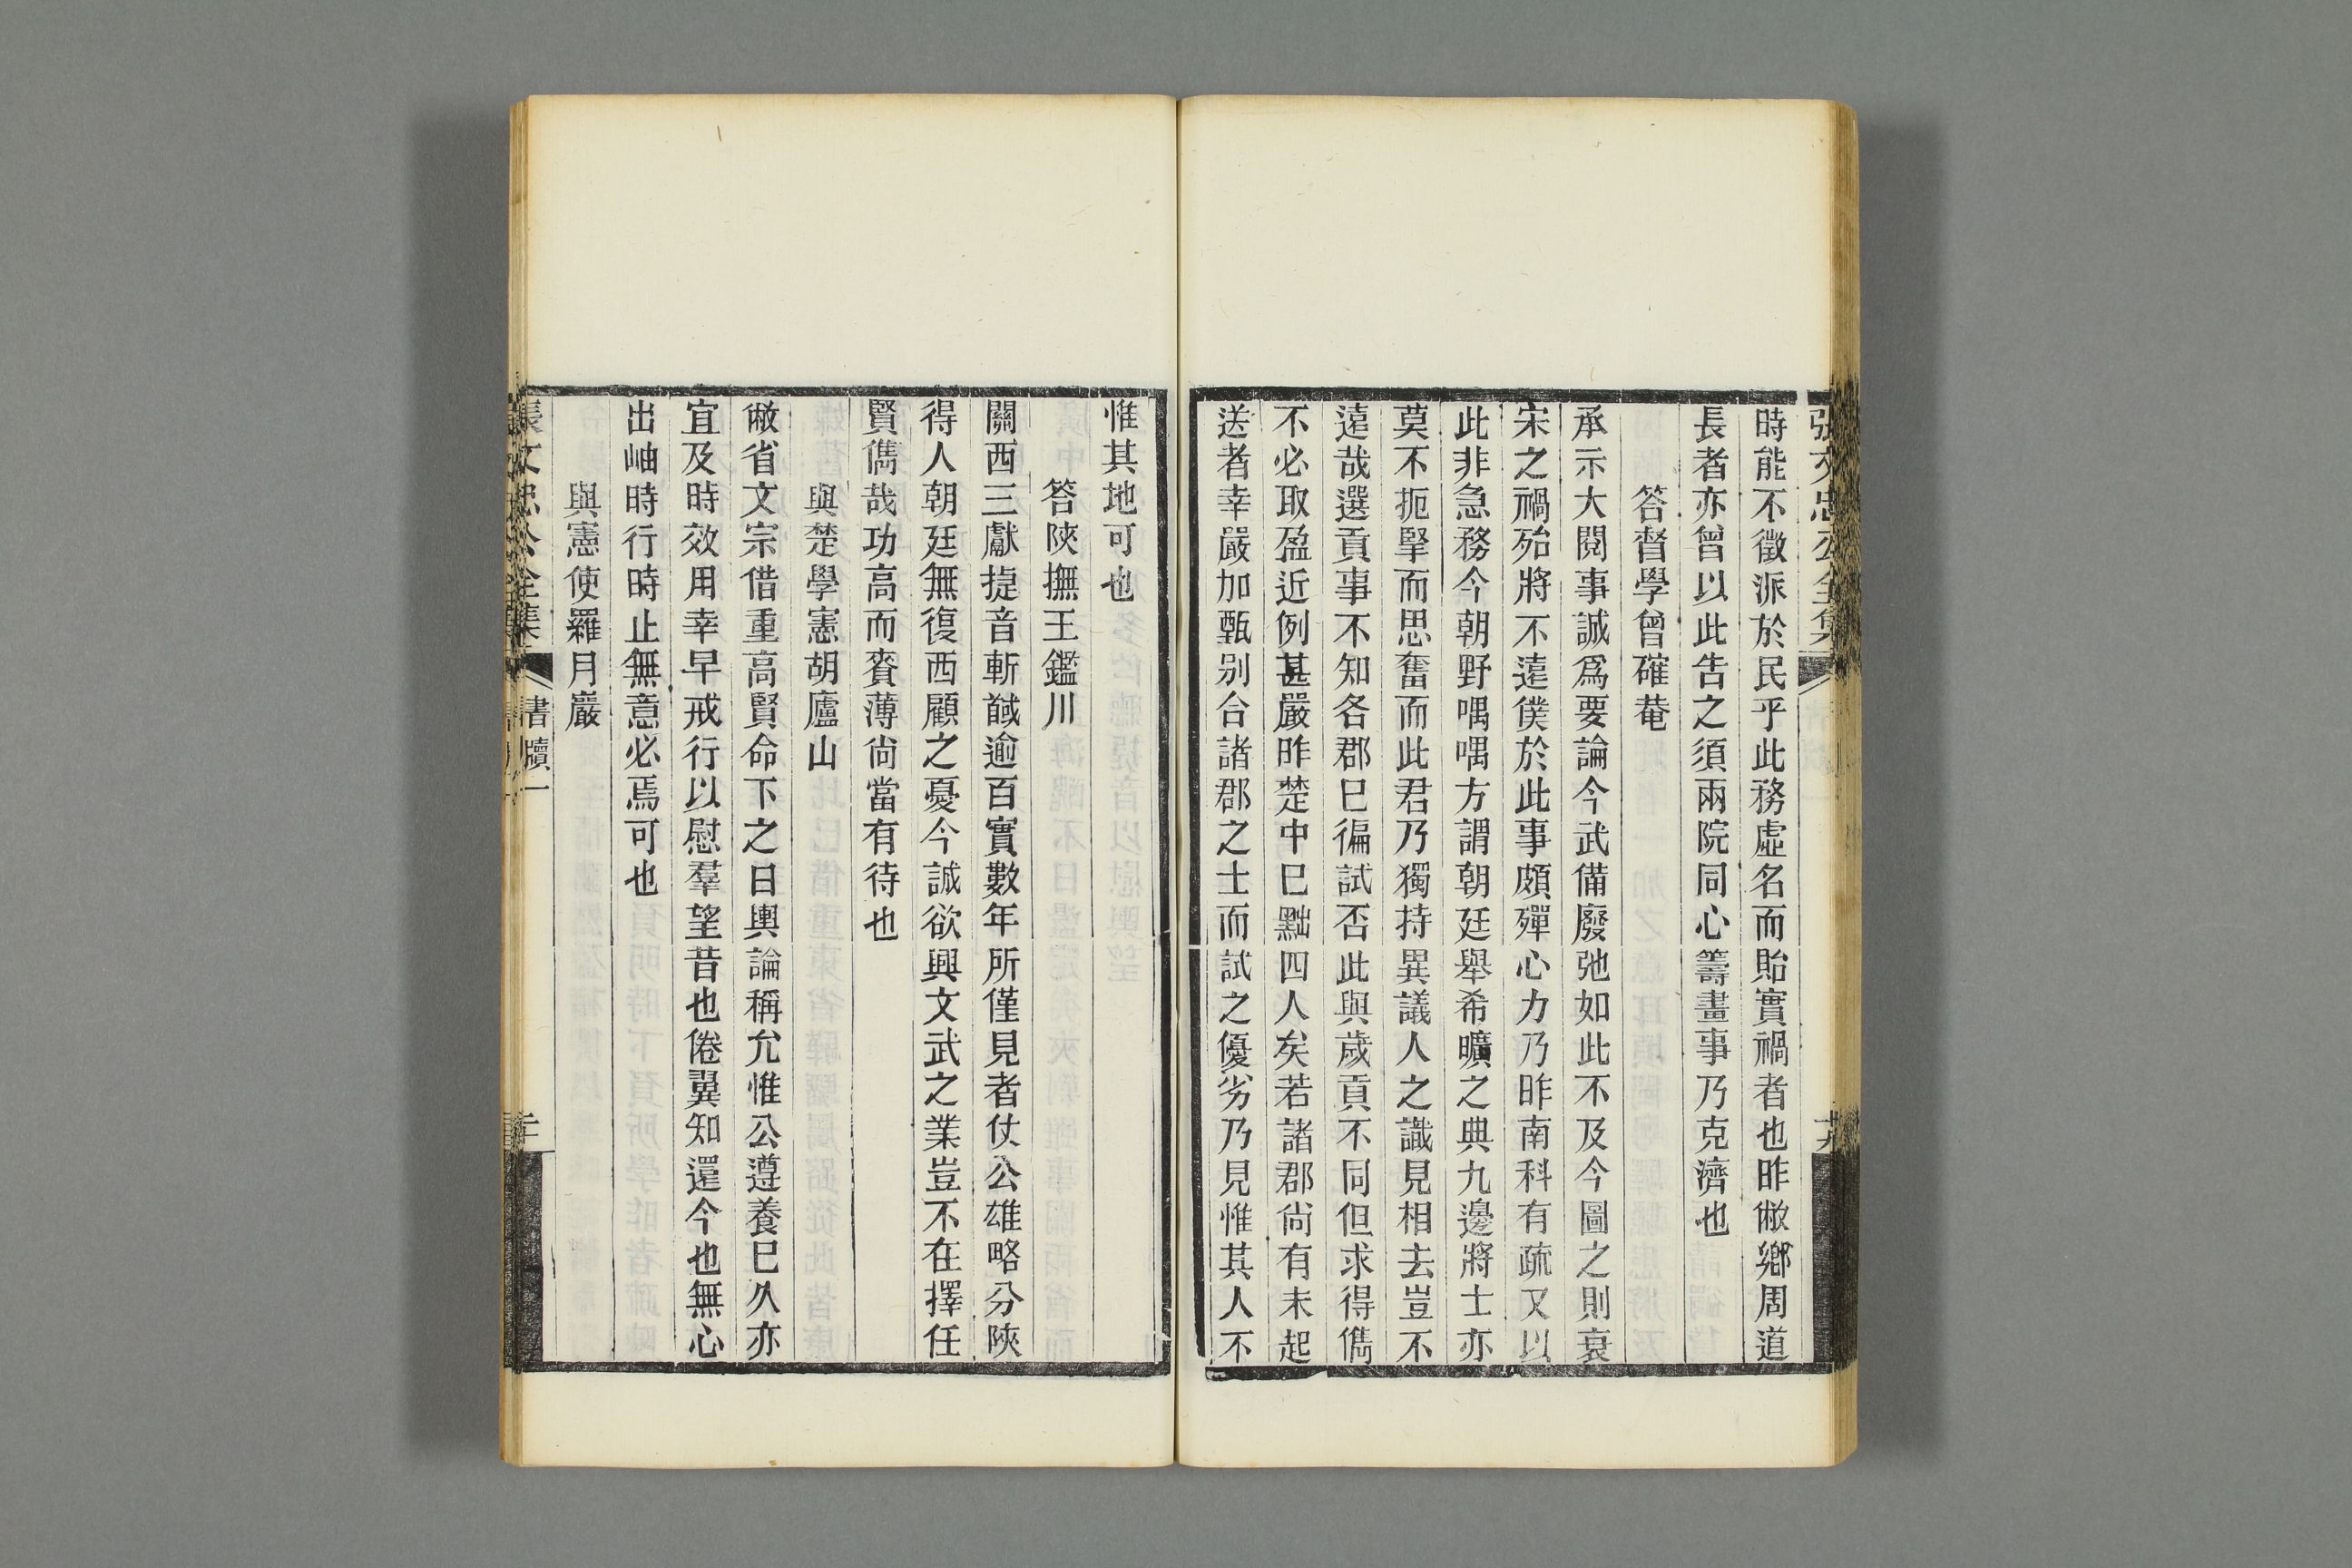 張文忠公全集
時能不徵派於民乎此務虛名而貽實禍者也昨敝鄉周道
長者亦曾以此告之須兩院同心籌畫事乃克濟也
答督學曾確菴
承示大閱事誠爲要論今武備廢弛如此不及今圖之則衰
宋之禍殆將不遠僕於此事頗殫心力乃昨南科有疏又以
此非急務今朝野喁喁方謂朝廷舉希曠之典九邊將士亦
莫不扼掔而思奮而此君乃獨持異議人之識見相去豈不
遠哉選貢事不知各郡巳徧試否此與歲貢不同但求得儁
不必取盈近例甚嚴昨楚中巳黜四人矣若諸郡尙有未起
送者幸嚴加甄别合諸郡之士而試之優劣乃見惟其人不
惟其地可也
答陝撫王鑑川
關西三獻捷音斬馘逾百實數年所僅見者仗公雄略分陝
得人朝廷無復西顧之憂今誠欲興文武之業豈不在擇任
賢儁哉功高而賚薄尙當有待也
與楚學憲胡廬山
敝省文宗借重高賢命下之日輿論稱允惟公遵養巳久亦
宜及時效用幸早戒行以慰羣望昔也倦翼知還今也無心
出岫時行時止無意必焉可也
與憲使羅月巖
張文忠公全集 書牘一